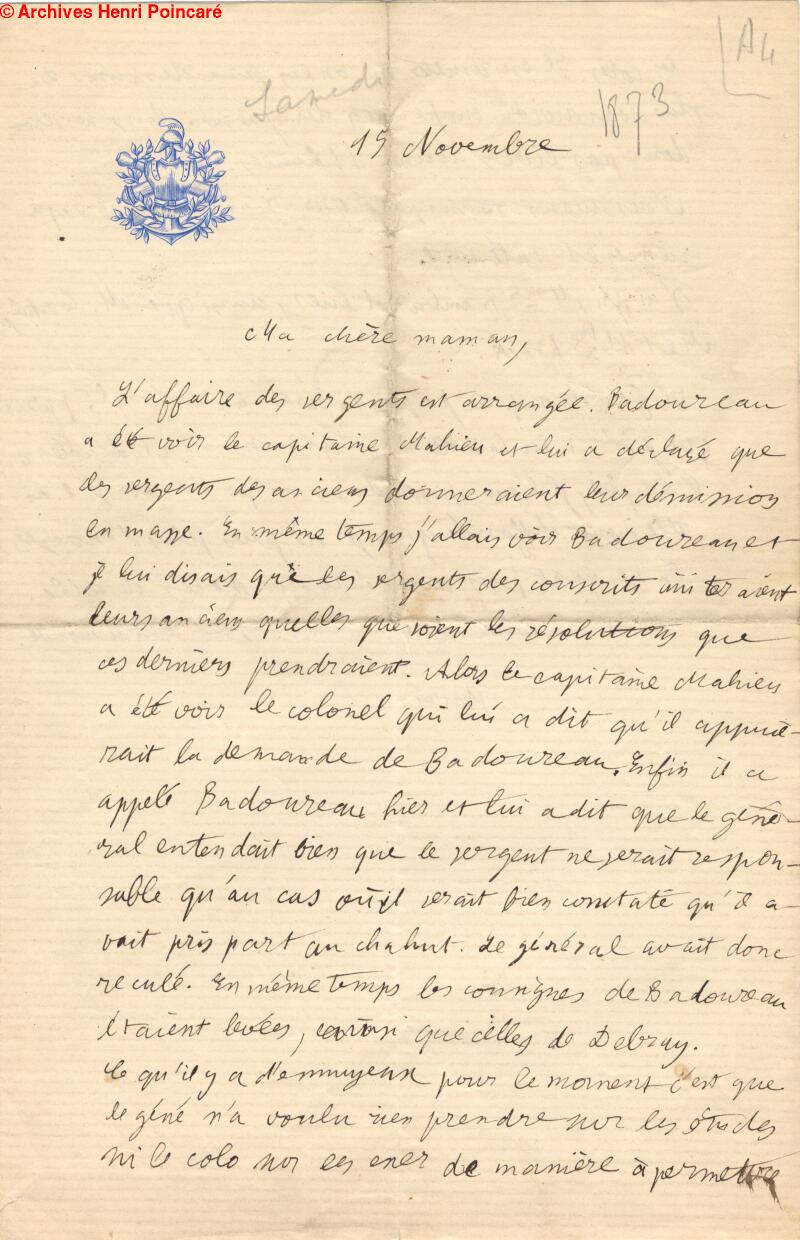 © Archives Henri Poincaré
A4
Samedi
1873
15 Novembre
Ma chère maman,
L'affaire des sergents est arrangée. Badoureau
a été voir le capitaine Mahieu et lui a déclaré que
des sergents des anciens donneraient leur démission
en masse. En même temps j'allais voir Badoureau et
je lui disais que les sergents des conscrits imiteraient
leurs anciens quelles que soient les résolutions que
ces derniers prendraient. Alors le capitaine Mahieu
a été voir le colonel qui lui a dit qu'il appuie-
rait la demande de Badoureau. Enfin il a
appelé Badoureau hier et lui a dit que le géné-
ral entendait bien que le sergent ne serait respon-
sable qu'au cas où il serait bien constaté qu'il a-
vait pris part au chahut. Le général avait donc
reculé. En même temps les consignes de Badoureau
étaient levées, ainsi que celles de Debray.
Ce qu'il y a d'ennuyeux pour le moment c'est que
le géné n'a voulu rien prendre sur les études
ni le colo sur ses de manière à permettre